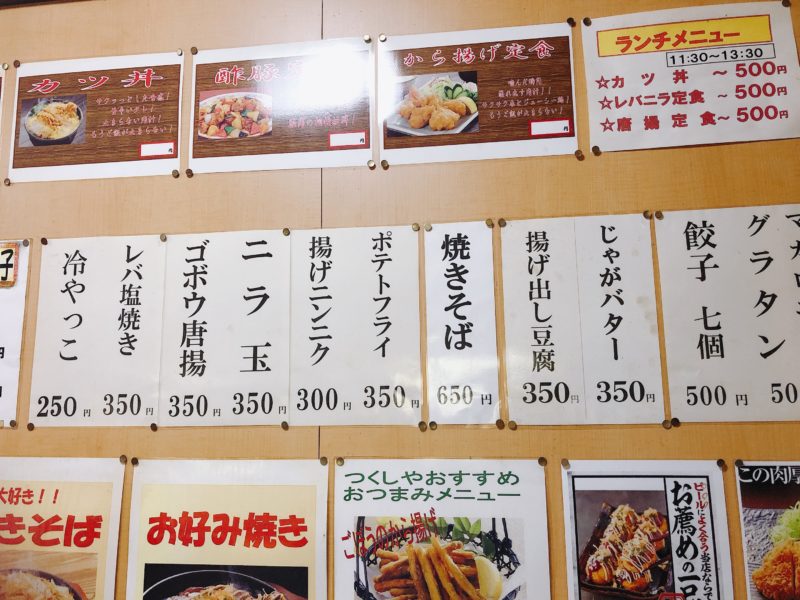 カツ丼
円
酢豚
円
から揚げ定食
円
ランチメニュー
11:30〜13:30
☆カツ丼 〜500円
☆レバニラ定食 〜500円
☆唐揚定食 〜500円
グラタン
餃子 七個 500円
じゃがバター 350円
揚げ出し豆腐 350円
焼きそば 650円
ポテトフライ 350円
揚げニンニク 300円
ニラ玉 350円
ゴボウ唐揚 350円
レバ塩焼き 350円
冷やっこ 250円
子
円
円
大好き!!
きそば
お好み焼き
つくしやおすすめ
おつまみメニュー
ごぼうのから揚げ
ビールによく合う当店なら
お薦めの一
この肉厚